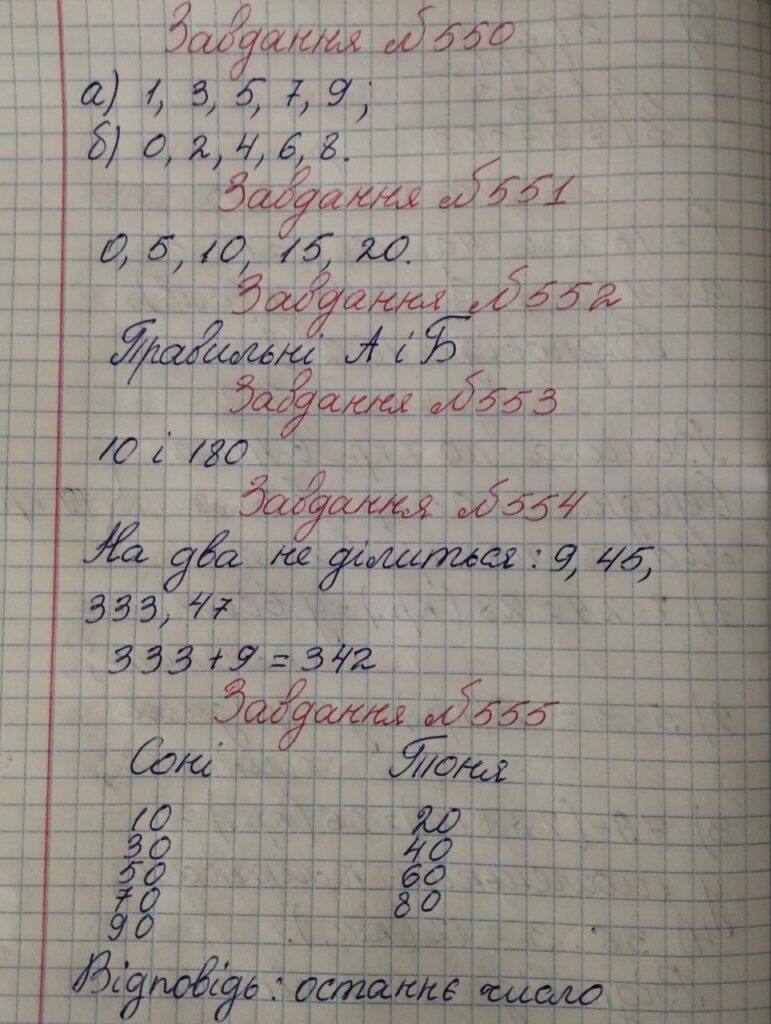 Завдання №550
а) 1, 3, 5, 7, 9;
б) 0, 2, 4, 6, 8.
Завдання №551
0, 5, 10, 15, 20.
Завдання №552
Правильні А і Б
Завдання №553
10 і 180
Завдання №554
На два не ділиться: 9, 45,
333, 47
333 + 9 = 342
Завдання №555
Соні Тоня
10 20
30 40
50 60
70 80
90
Відповідь: останнє число